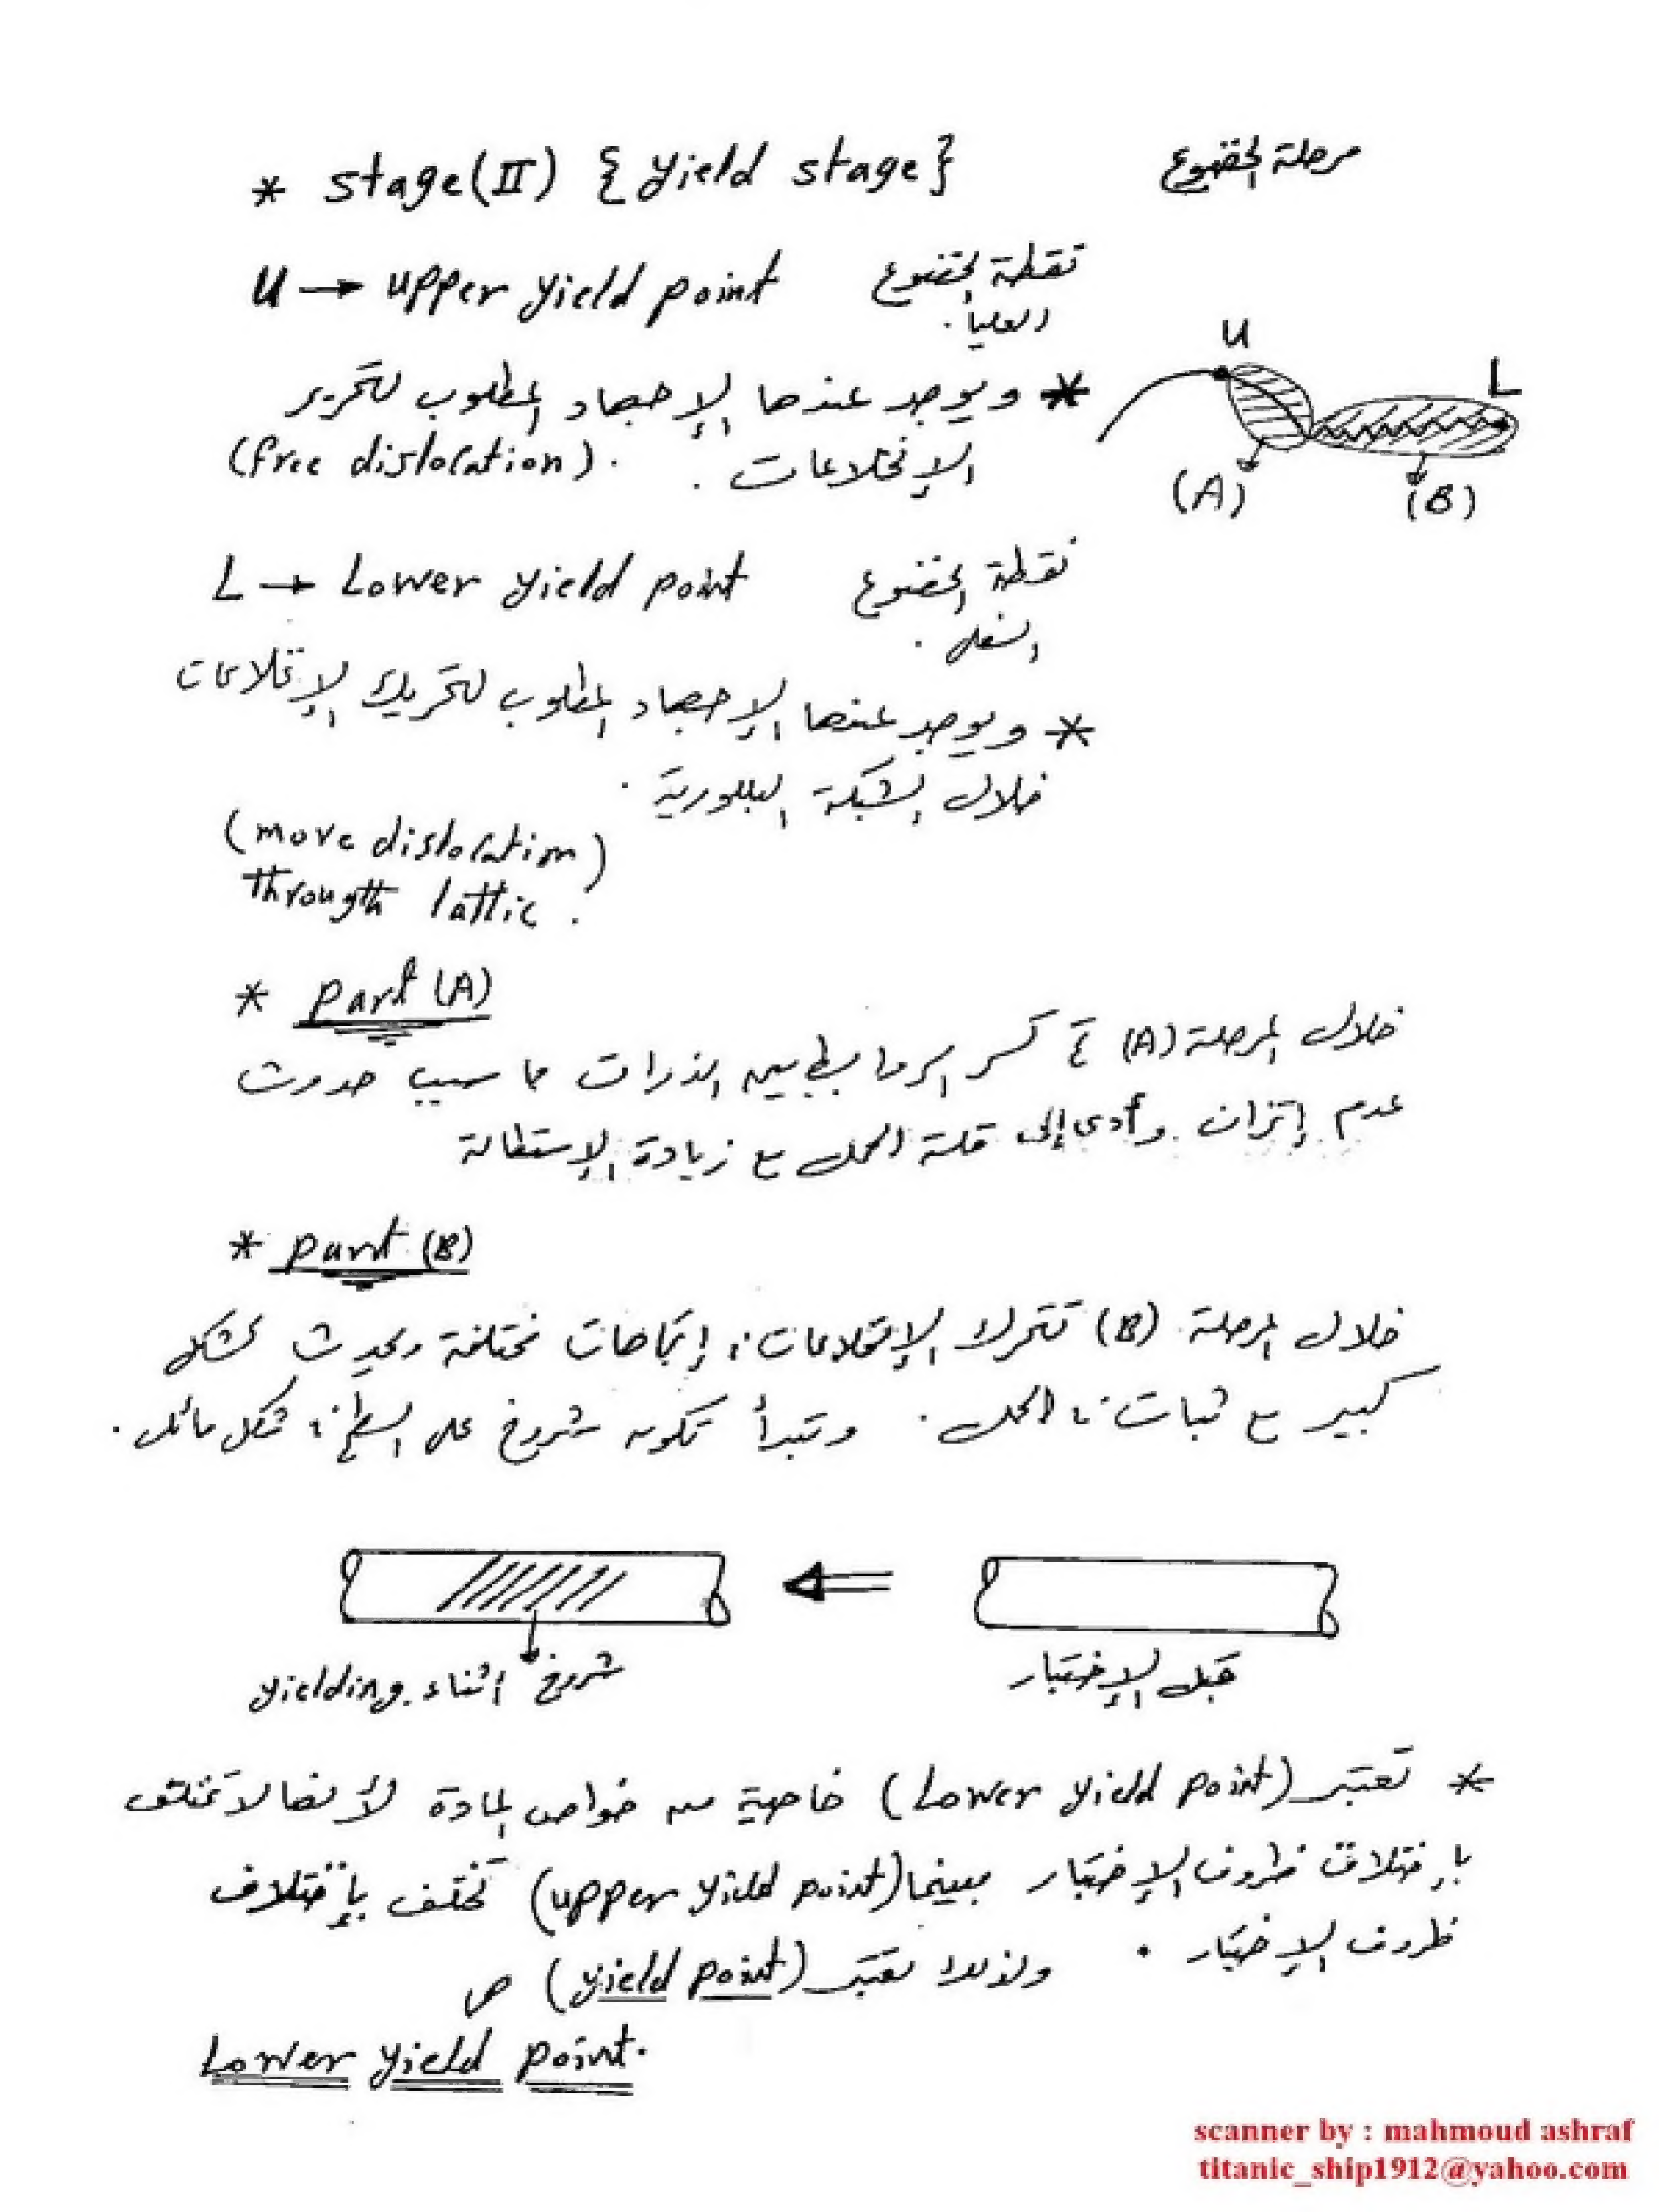 * stage(II) {yield stage} مرحلة الخضوع
U → upper yield point نقطة الخضوع
العليا.
* ويوجد عندها الإجهاد المطلوب لتحرير
الإنخلاعات. (free dislocation).
U
L
(A)
(B)
L → Lower yield point نقطة الخضوع
السفلى.
* ويوجد عندها الإجهاد المطلوب لتحريك الإنخلاعات
خلال الشبكة البللورية.
(move dislocation)
through lattic.
* part (A)
خلال المرحلة (A) تم كسر الروابط بين الذرات مما سبب حدوث
عدم إتزان وأدى إلى قلة الحمل مع زيادة الإستطالة
* part (B)
خلال المرحلة (B) تتحرك الإنخلاعات في إتجاهات مختلفة ويحدث تشكل
كبير مع ثبات في الحمل. وتبدأ تكون شروخ على السطح في شكل مائل.
قبل الإختبار
شروخ أثناء yielding.
* تعتبر (Lower yield point) خاصية من خواص المادة لأنها لا تختلف
بإختلاف ظروف الإختبار بينما (upper yield point) تختلف بإختلاف
ظروف الإختبار. ولذلك تعتبر (yield point) هى
Lower yield point.
scanner by : mahmoud ashraf
titanic_ship1912@yahoo.com